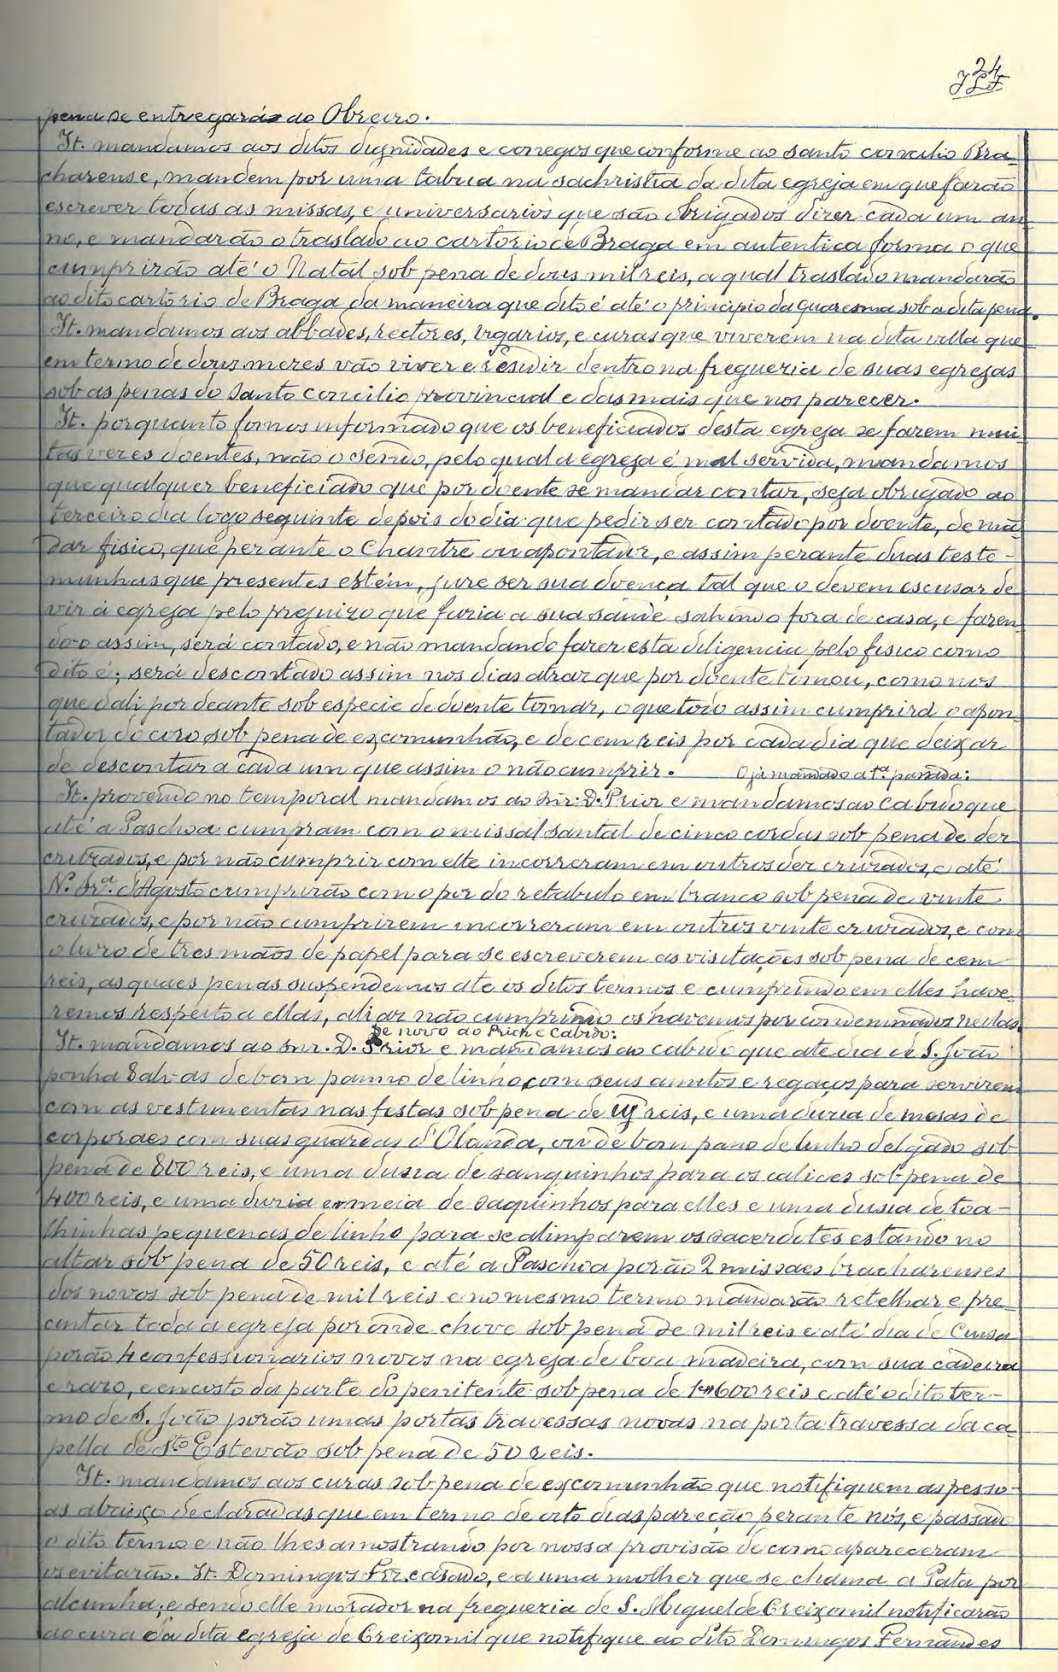 24
pena se entregará ao Obreiro.
It. mandamos aos ditos dignidades e conegos que conforme ao santo concilio Bra-
charense, mandem por uma tabua na sachristia da dita egreja em que farão
escrever todas as missas, e universarios que são obrigados dizer cada um an-
no, e mandarão o traslado ao cartorio de Braga em autentica forma o que
cumprirão até o Natal sob pena de dous mil reis, a qual traslado mandarão
ao dito cartorio de Braga da maneira que dito é até o principio da quaresma sob a dita pena.
It. mandamos aos abbades, rectores, vigarios, e curas que viverem na dita villa que
em termo de dous mezes vão viver e residir dentro na freguezia de suas egrejas
sob as penas do santo concilio provincial e das mais que nos parecer.
It. porquanto fomos informado que os beneficiados desta egreja se fazem mui-
tas vezes doentes, não o sendo, pelo qual a egreja é mal servida, mandamos
que qualquer beneficiado que por doente se mandar contar, seja obrigado ao
terceiro dia logo seguinte depois do dia que pedir ser contado por doente, de mã-
dar fisico, que perante o Chantre ou apontador, e assim perante duas teste-
munhas que presentes estém, jure ser sua doença tal que o devem escusar de
vir á egreja pelo prejuizo que faria a sua saude sahindo fora de casa, e fazen-
do-o assim, será contado, e não mandando fazer esta diligencia pelo fisico como
dito é; será descontado assim nos dias atraz que por doente tomou, como nos
que dali por deante sob especie de doente tomar, o que todo assim cumprirá o apon-
tador do coro sob pena de excomunhão, e de cem reis por cada dia que deixar
de descontar a cada um que assim o não cumprir. O já mandado a tª. passada:
It. provendo no temporal mandamos ao Snr. D. Prior e mandamos ao cabido que
até a Paschoa cumpram com o missal santal de cinco cordas sob pena de dez
cruzados, e por não cumprir com elle incorreram em outros dez cruzados, e até
N. Srª. d'Agosto cumprirão com o por do retabulo em branco sob pena de vinte
cruzados, e por não cumprirem incorreram em outros vinte cruzados, e com
o livro de tres mãos de papel para se escreverem as visitações sob pena de cem
reis, as quaes penas suspendemos até os ditos termos e cumprindo em elles have-
remos respeito a ellas, aliaz não cumprindo os havemos por condemnados nellas.
De novo ao Prior e Cabido:
It. mandamos ao snr. D. Prior e mandamos ao cabido que até dia de S. João
ponha 8 alvas de bom panno de linho com seus amitos e regaços para servirem
com as vestimentas nas festas sob pena de reis, e uma duzia de mesas de
corporaes com suas guardas d'Olanda, ou de bom pano de linho delgado sob
pena de 800 reis, e uma duzia de sanguinhos para os calices sob pena de
400 reis, e uma duzia e meia de saquinhos para elles e uma duzia de toa-
lhinhas pequenas de linho para se alimparem os sacerdotes estando no
altar sob pena de 50 reis, e até a Paschoa porão 2 missaes bracharenses
dos novos sob pena de mil reis e no mesmo termo mandarão retelhar e pre-
cintar toda a egreja por onde chove sob pena de mil reis e até dia de
porão 4 confessionarios novos na egreja de boa madeira, com sua cadeira
e raro, e encosto da parte do penitente sob pena de 1600 reis e até o dito ter-
mo de S. João porão umas portas travessas novas na porta travessa da ca-
pella de Sto Estevão sob pena de 50 reis.
It. mandamos aos curas sob pena de excomunhão que notifiquem as pesso-
as abaixo declaradas que em termo de oito dias pareção perante nós, e passado
o dito termo e não lhes amostrando por nossa provisão de como apareceram
os evitarão. It. Domingos Frz. casado, e a uma molher que se chama a Pata por
alcunha; e sendo elle morador na freguezia de S. Miguel de Creixomil notificarão
ao cura da dita egreja de Creixomil que notifique ao dito Domingos Fernandes